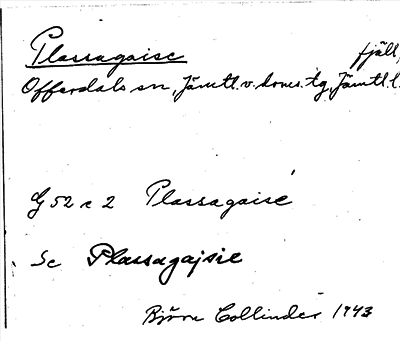 Plassagaise fjäll,
Offerdals sn, Jämtl. v. doms. tg, Jämtl. l.
G 52 c 2 Plassagaisé
Sc Plassagajsie
Björn Collinder 1943